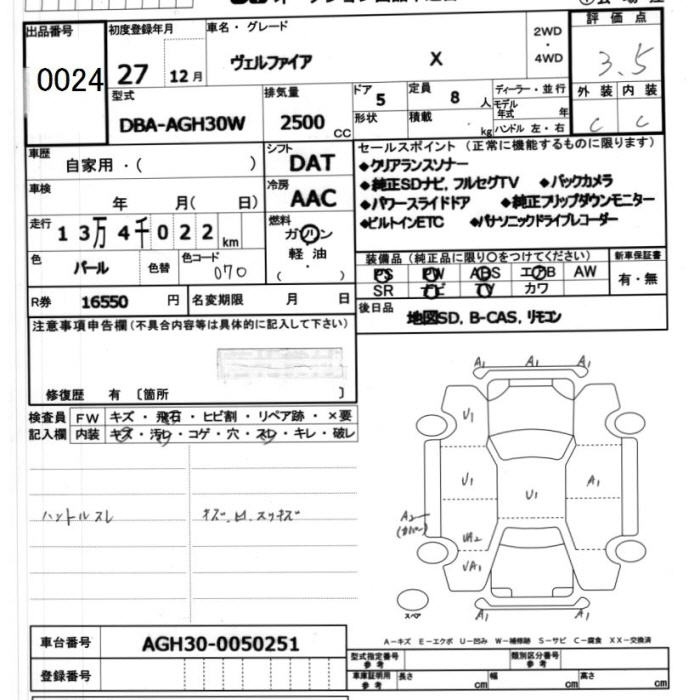 出品番号
0024
初度登録年月
27 12月
車名・グレード
ヴェルファイア X
2WD
・
4WD
評価点
3.5
外装 内装
C C
型式
DBA-AGH30W
排気量
2500 CC
ドア 5
形状
定員 8 人
積載 kg
ディーラー・並行
モデル年式 年
ハンドル 左・右
車歴
自家用・( )
シフト
DAT
車検
年 月( 日)
冷房
AAC
走行
13万4千022 km
燃料
ガソリン
軽油
・
色
パール
色替
色コード
070
R券 16550 円
名変期限 月 日
セールスポイント (正常に機能するものに限ります)
◆クリアランスソナー
◆純正SDナビ, フルセグTV ◆バックカメラ
◆パワースライドドア ◆純正フリップダウンモニター
◆ビルトインETC ◆パナソニックドライブレコーダー
装備品 (純正品に限り○をつけてください)
PS PW ABS エアB AW
SR ナビ TV カワ
新車保証書
有・無
後日品
地図SD, B-CAS, リモコン
注意事項申告欄(不具合内容等は具体的に記入して下さい)
修復歴 有 〔箇所 〕
検査員記入欄
FW キズ・飛石・ヒビ割・リペア跡・×要
内装 キズ・汚れ・コゲ・穴・スレ・キレ・破レ
ハンドルスレ
キズ.凹.スリキズ
A1 A1 A1
U1
U1 U1 A1
A2
(カバー)
UA2
UA1
スペア
A1 A1
車台番号 AGH30-0050251
登録番号
A−キズ E−エクボ U−凹み W−補修跡 S−サビ C−腐食 XX−交換済
型式指定番号 参考
類別区分番号 参考
車庫証明用 参考
長さ cm 幅 cm 高さ cm